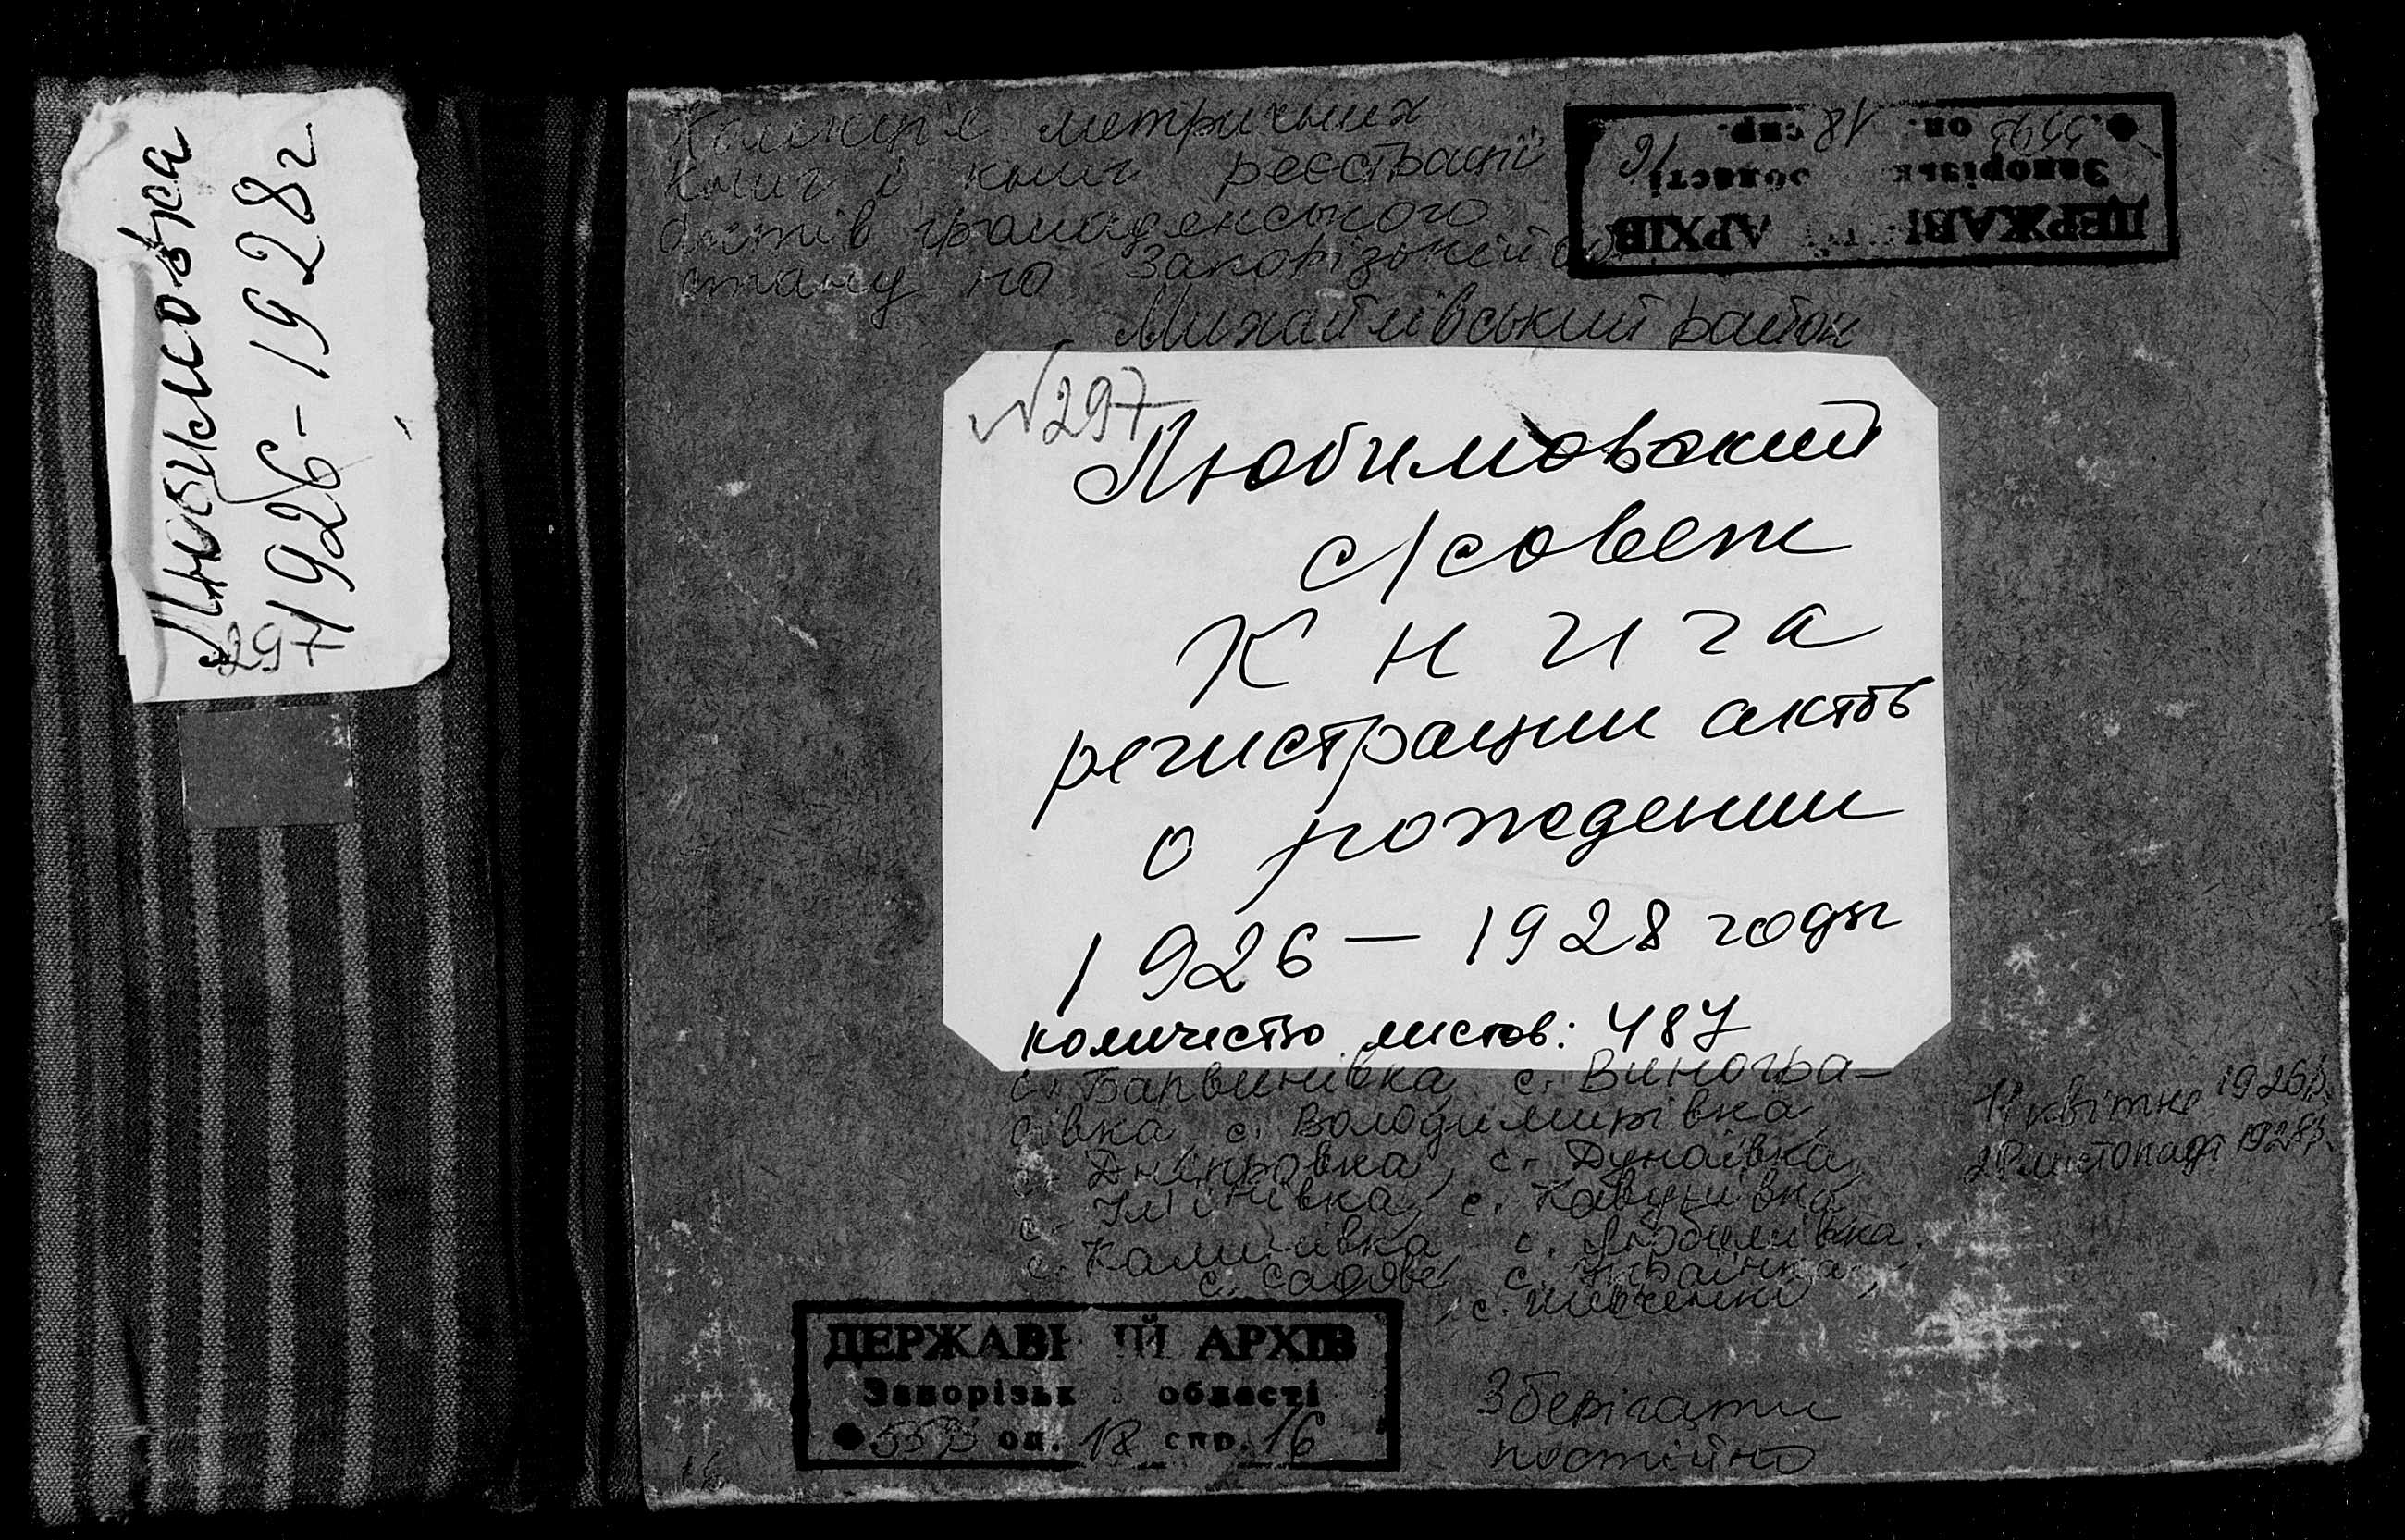 Любимовка
1926-1928г
297
Колекція метричних
книг і книг реєстрації
актів громадянського
стану по Запорізькій об
Михайлівський район
ДЕРЖАВН АРХІВ
Запорізьк області
Ф. оп. 18 спр. 16
№297
Любимовский
с/совет
Книга
регистрации актов
о рождении
1926-1928 годы
количество листов: 487
с. Барвинівка, с. Виногра-
дівка, с. Володимирівка,
с. Дніпровка, с. Дунаївка,
с. Іллінівка, с. Кавунівка
с. Калинівка, с. Любимівка,
с. Садове, с. Українка,
с. Шевченко
квітня 1926р.
листопада 1928р.
ДЕРЖАВН ИЙ АРХІВ
Запорізьк області
Ф 5593 оп. 18 спр. 16
Зберігати
постійно
16